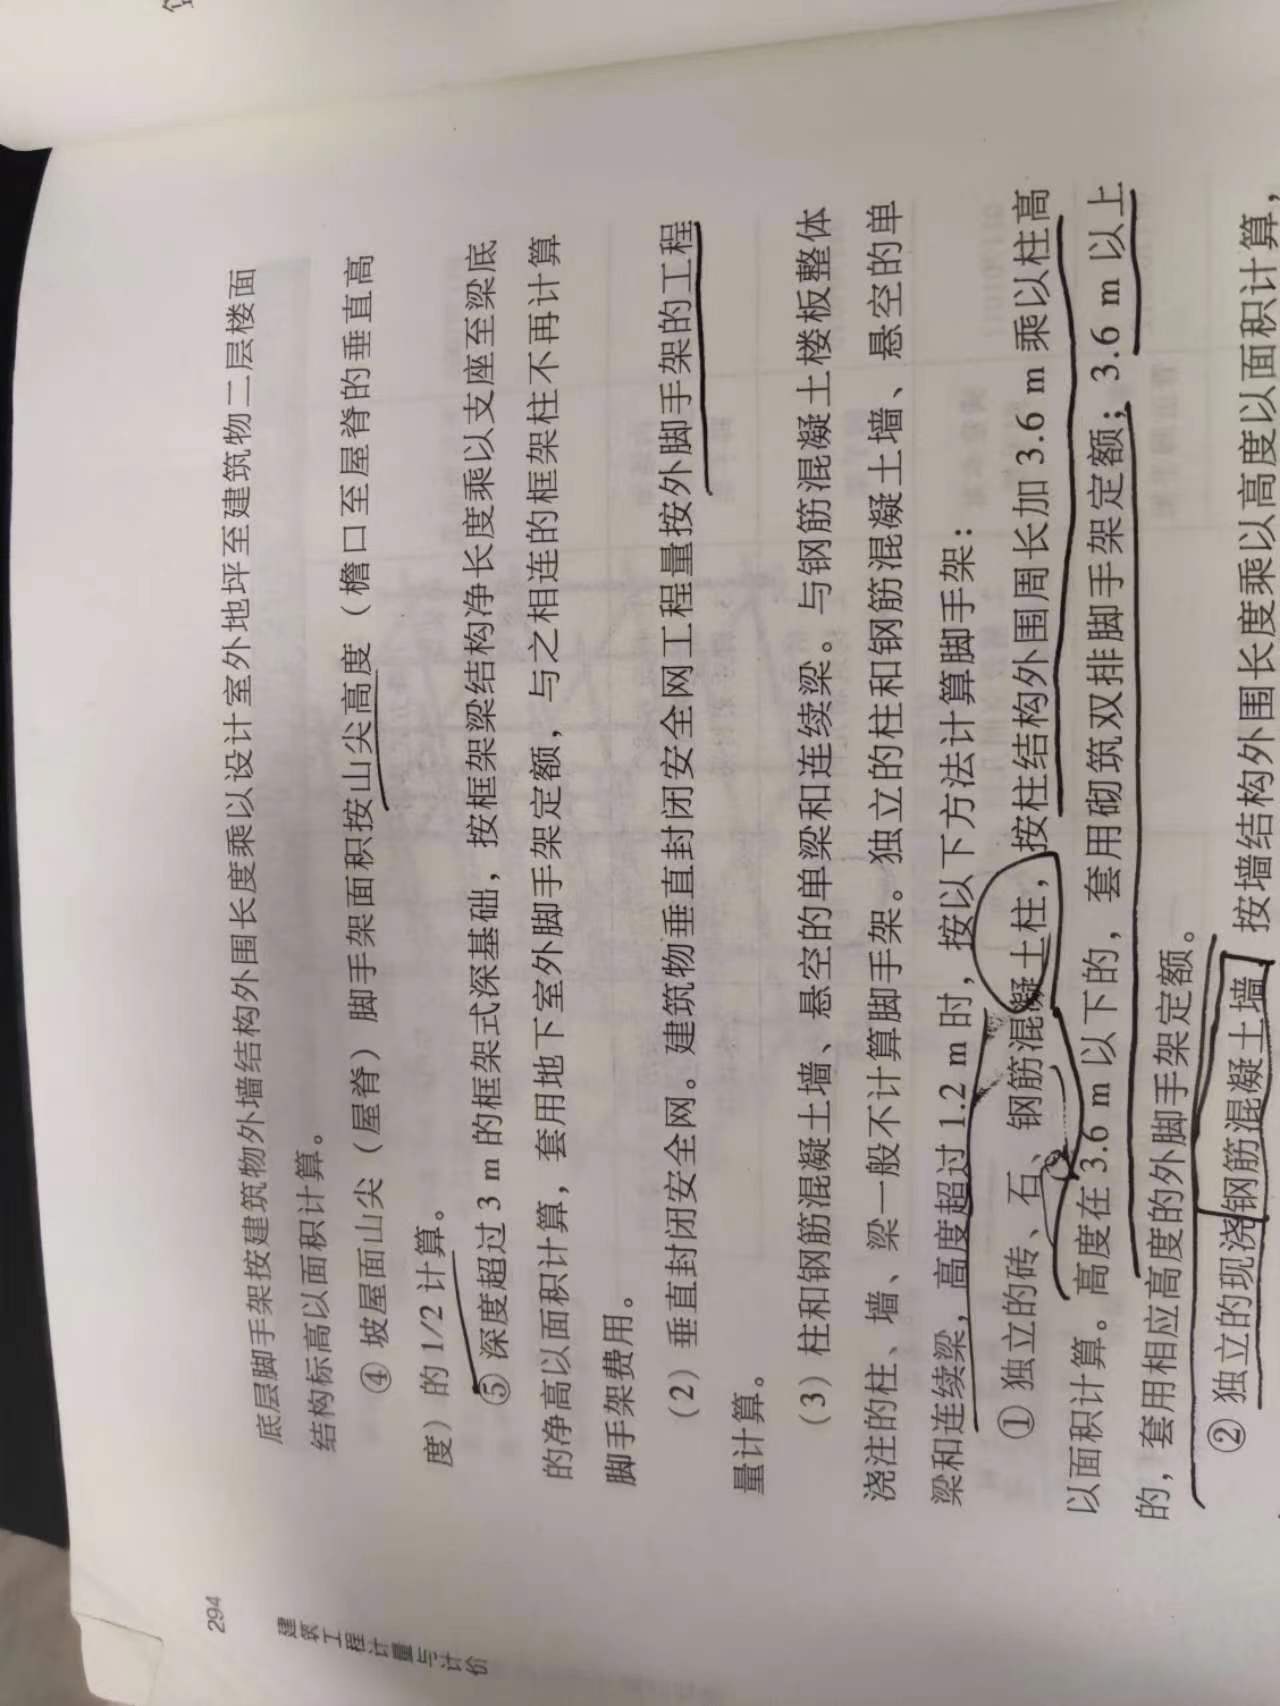 294
建筑工程计量与计价
底层脚手架按建筑物外墙结构外围长度乘以设计室外地坪至建筑物二层楼面
结构标高以面积计算。
④ 坡屋面山尖（屋脊）脚手架面积按山尖高度（檐口至屋脊的垂直高
度）的 1/2 计算。
⑤ 深度超过 3 m 的框架式深基础，按框架梁结构净长度乘以支座至梁底
的净高以面积计算，套用地下室外脚手架定额，与之相连的框架柱不再计算
脚手架费用。
（2）垂直封闭安全网。建筑物垂直封闭安全网工程量按外脚手架的工程
量计算。
（3）柱和钢筋混凝土墙、悬空的单梁和连续梁。与钢筋混凝土楼板整体
浇注的柱、墙、梁一般不计算脚手架。独立的柱和钢筋混凝土墙、悬空的单
梁和连续梁，高度超过 1.2 m 时，按以下方法计算脚手架：
① 独立的砖、石、钢筋混凝土柱，按柱结构外围周长加 3.6 m 乘以柱高
以面积计算。高度在 3.6 m 以下的，套用砌筑双排脚手架定额；3.6 m 以上
的，套用相应高度的外脚手架定额。
② 独立的现浇钢筋混凝土墙，按墙结构外围长度乘以高度以面积计算，